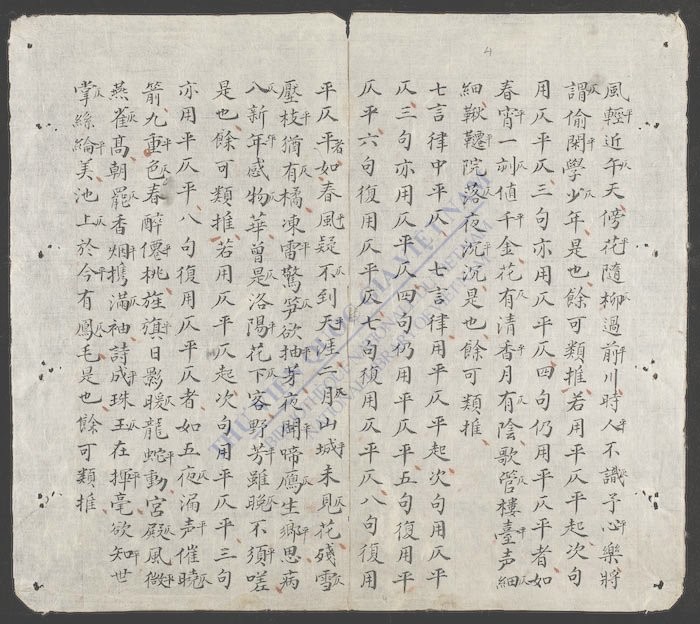 風輕近午天傍花隨柳過前川時人不識予心樂將
謂偷閑學少年是也餘可類推若用平仄平起次句
用仄平仄三句亦用仄平仄四句仍用平仄平者如
春宵一刻值千金花有清香月有陰歌管樓臺声細
細鞦韆院落夜沉沉是也餘可類推
七言律中平仄 七言律用平仄平起次句用仄平
仄三句亦用仄平仄四句仍用平仄平五句復用平
仄平六句復用仄平仄七句復用仄平仄八句復用
平仄平者如春風疑不到天涯二月山城未見花殘雪
壓枝猶有橘凍雷驚笋欲抽芽夜聞啼鴈生鄉思病
入新年感物華曾是洛陽花下客野芳雖晚不須嗟
是也餘可類推若用仄平仄起次句用平仄平三句
亦用平仄平八句復用仄平仄者如五夜漏声催曉
箭九重色春醉僊桃旌旗日影暖龍蛇動宮殿風微
燕雀高朝罷香烟携滿袖詩成珠玉在揮毫欲知世
掌絲綸美池上於今有鳳毛是也餘可類推
THƯ VIỆN QUỐC GIA VIỆT NAM
BIBLIOTHÈQUE NATIONALE DU VIETNAM
NATIONAL LIBRARY OF VIETNAM